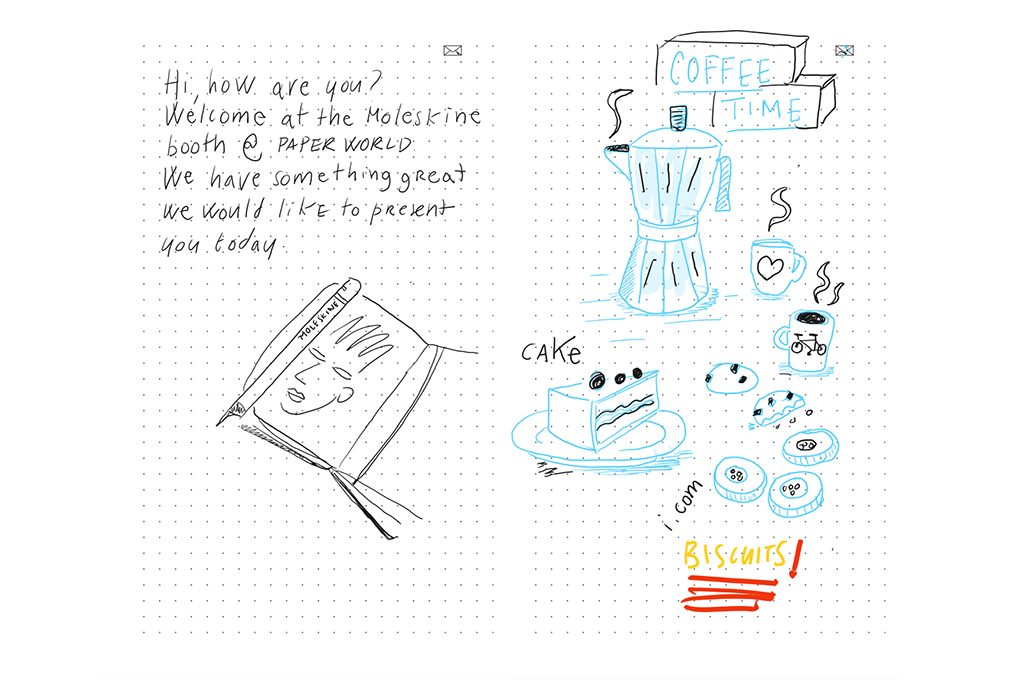 Hi, how are you?
Welcome at the Moleskine
booth @ PAPER WORLD
We have something great
we would like to present
you today.
MOLESKINE
COFFEE
TIME
CAKe
i.com
BISCUITS!